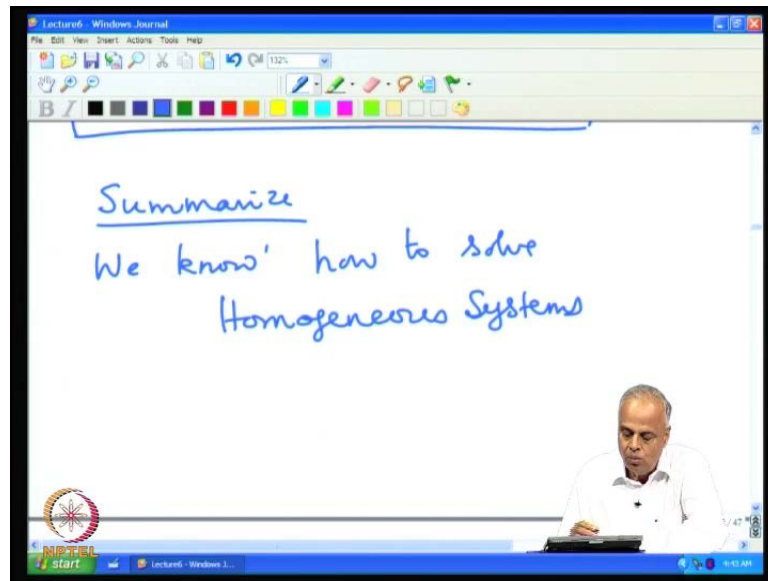 Lecture6 - Windows Journal
File Edit View Insert Actions Tools Help
132%
B I
Summarize
We know' how to solve
Homogeneous Systems
/ 47
NPTEL
start
Lecture6 - Windows J...
4:42 AM